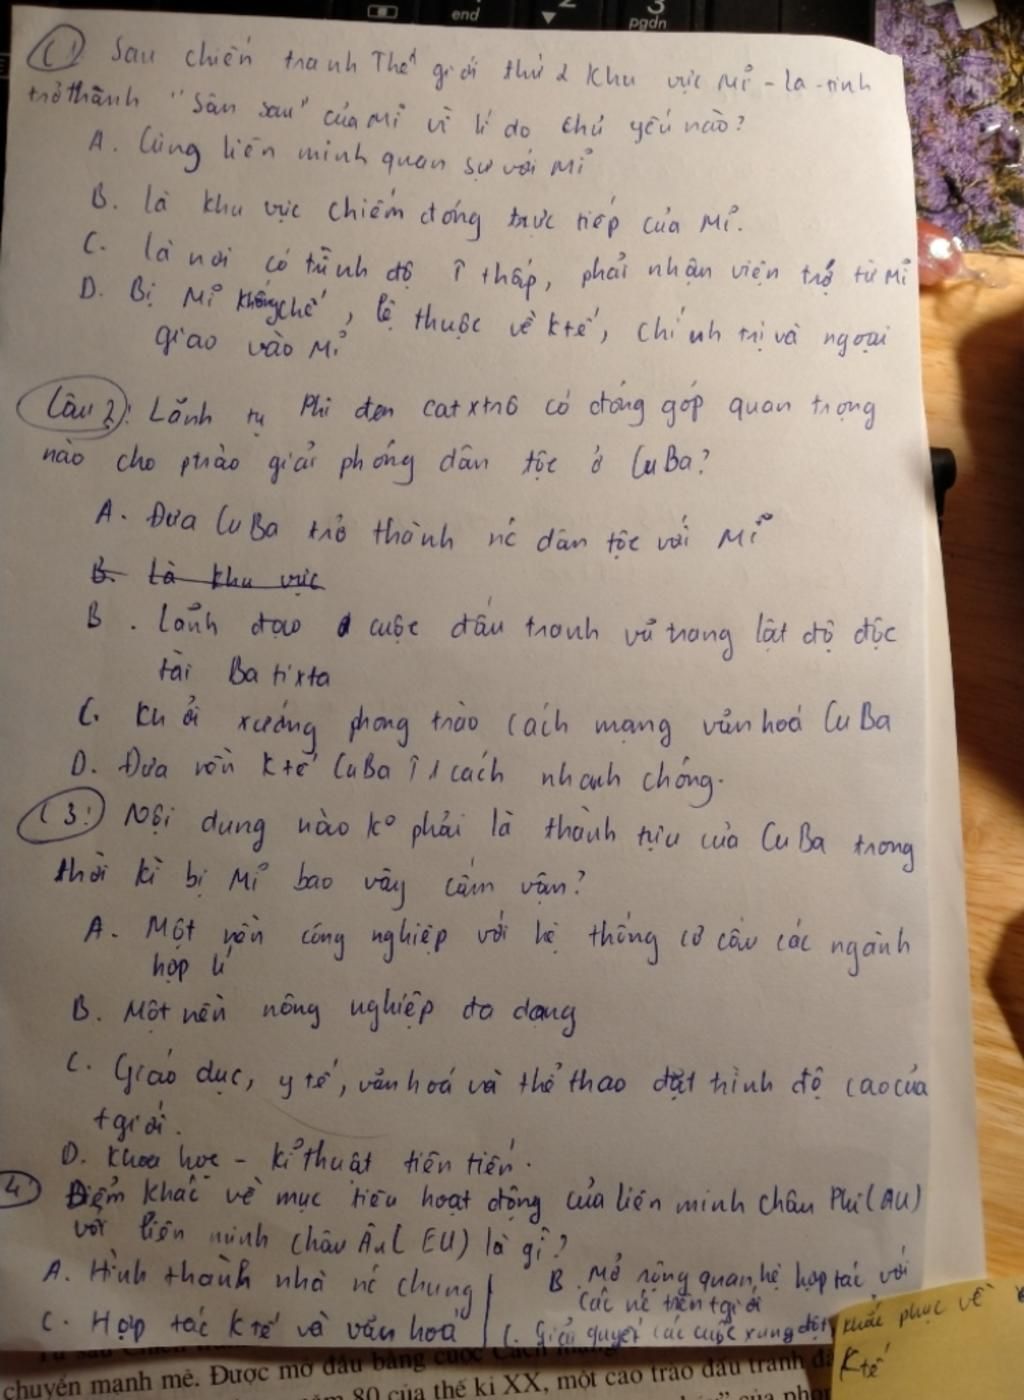 end
2
3
pgdn
C1 Sau chiến tranh Thế giới thứ 2 khu vực Mĩ - la-tinh
trở thành "Sân sau" của Mĩ vì lí do chủ yếu nào?
A. Cùng liên minh quân sự với Mĩ
B. là khu vực chiếm đóng trực tiếp của Mĩ.
C. là nơi có trình độ ↑ thấp, phải nhận viện trợ từ Mĩ
D. Bị Mĩ khống chế, lệ thuộc về ktế, chính trị và ngoại
giao vào Mĩ
Câu 2: Lãnh tụ Phi đen catxtrô có đóng góp quan trọng
nào cho ptrào giải phóng dân tộc ở CuBa?
A. Đưa CuBa trở thành nć dân tộc với Mĩ
B. Là khu vực
B. Lãnh đạo cuộc đấu tranh vũ trang lật đổ độc
tài Batixta
C. Khởi xướng phong trào cách mạng văn hoá CuBa
D. Đưa nền Ktế CuBa ↑ 1 cách nhanh chóng.
C3: Nội dung nào k° phải là thành tựu của CuBa trong
thời kì bị Mĩ bao vây cấm vận?
A. Một nền công nghiệp với hệ thống cơ cấu các ngành
hợp lí
B. Một nền nông nghiệp đa dạng
C. Giáo dục, y tế, văn hoá và thể thao đạt trình độ cao của
tgiới.
D. Khoa học - kĩ thuật tiên tiến.
4 Điểm khác về mục tiêu hoạt động của liên minh châu Phi (AU)
với liên minh châu Âu (EU) là gì?
A. Hình thành nhà nć chung
B. Mở rộng quan hệ hợp tác với
các nć trên tgiới
C. Hợp tác Ktế và văn hoá
C. Giải quyết các cuộc xung đột
khắc phục về
Ktế
chuyển mạnh mẽ. Được mở đầu bằng cuộc Cách mạng
năm 80 của thế kỉ XX, một cao trào đấu tranh đã